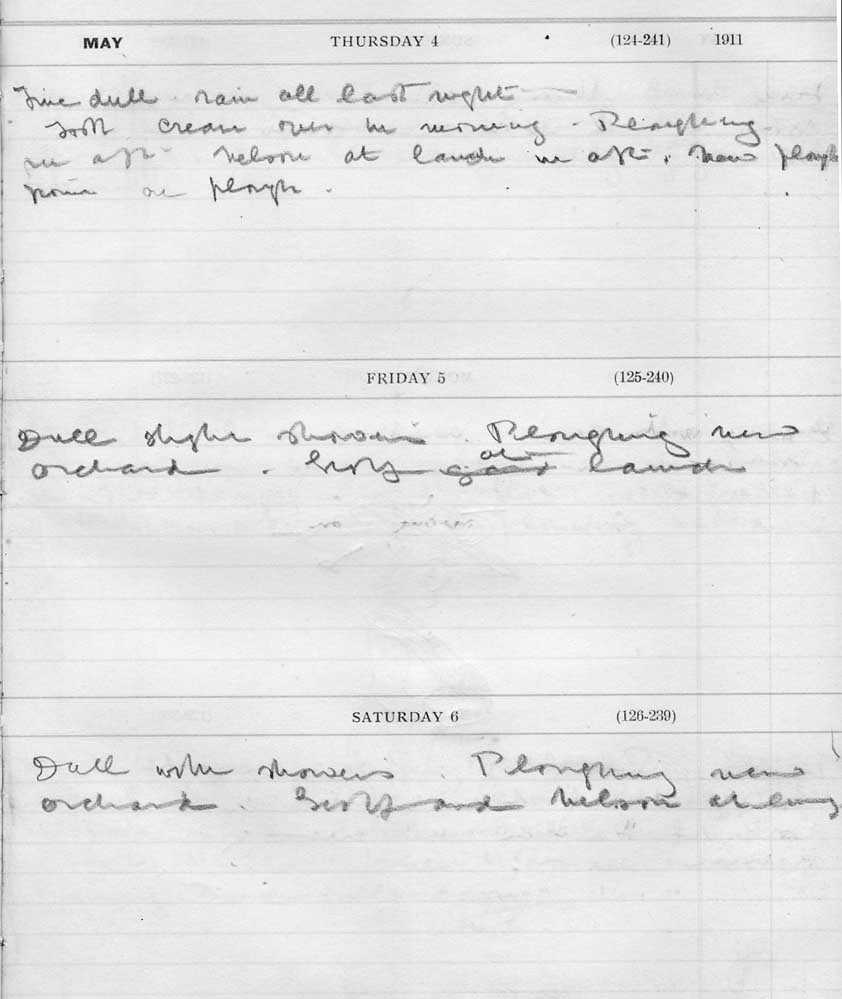 MAY THURSDAY 4 (124-241) 1911
Fine dull rain all last night
Took cream over in morning. Ploughing
in aft. Nelson at land in aft. New plough
point on plough.
FRIDAY 5 (125-240)
Dull slight showers. Ploughing new
orchard. at
SATURDAY 6 (126-239)
Dull with showers. Ploughing new
orchard. and Nelson